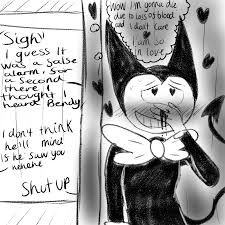 "Sigh"
I guess It
was a false
alarm, for
a second
there I
thought I
heard Bendy
I don't think
he'll mind
Is he saw you
hehehe
Shut up
Wow I'm gonna die
due to loss of blood
and I don't care
I am so
in love